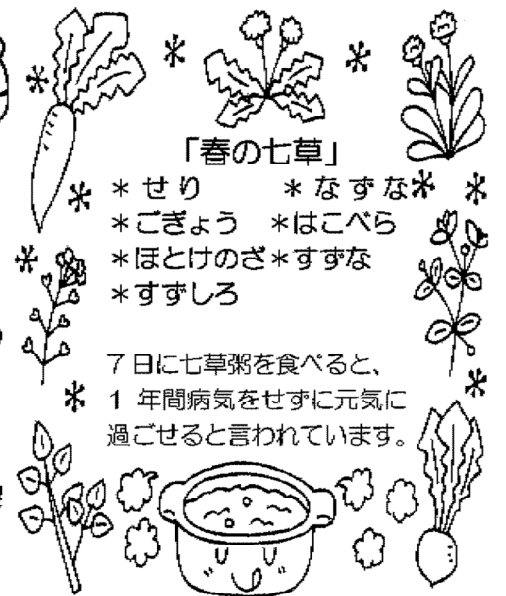 「春の七草」
＊せり　＊なずな
＊ごぎょう　＊はこべら
＊ほとけのざ＊すずな
＊すずしろ
7日に七草粥を食べると、
1 年間病気をせずに元気に
過ごせると言われています。